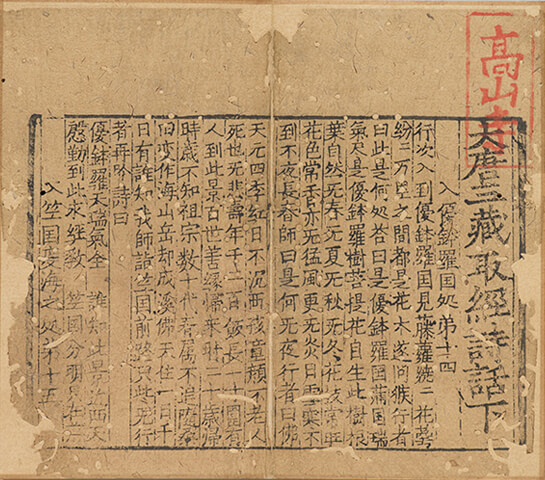 高山寺
大唐三藏取經詩話下
入優鉢羅国処第十四
行次入到優鉢羅国見藤蘿繞二花萼
紛二万里之間都是花木遂問猴行者
曰此是何処荅曰是優鉢羅國滿国瑞
氣尽是優鉢羅樹菩提花自生此樹根
葉自然无春无夏无秋无冬花枝常旺
花色常香亦无猛風更无炎日雪寒不
到不夜長春師曰是何无夜行者曰佛
天无四季紅日不沉西孩童顏不老人
死也无悲壽年千二百飯長一十圍有
人到此景百世善緣歸來時二十歲歸
時歲不知祖宗數十代眷属不追隨桑
田变作海山岳却成溪佛天住一日千
日有誰知我師詣竺国前路只此无行
者再吟詩曰
優鉢羅天瑞氣全 誰知此景近西天
慇勤到此求經教 竺国分明只在
入竺国度海之処第十五